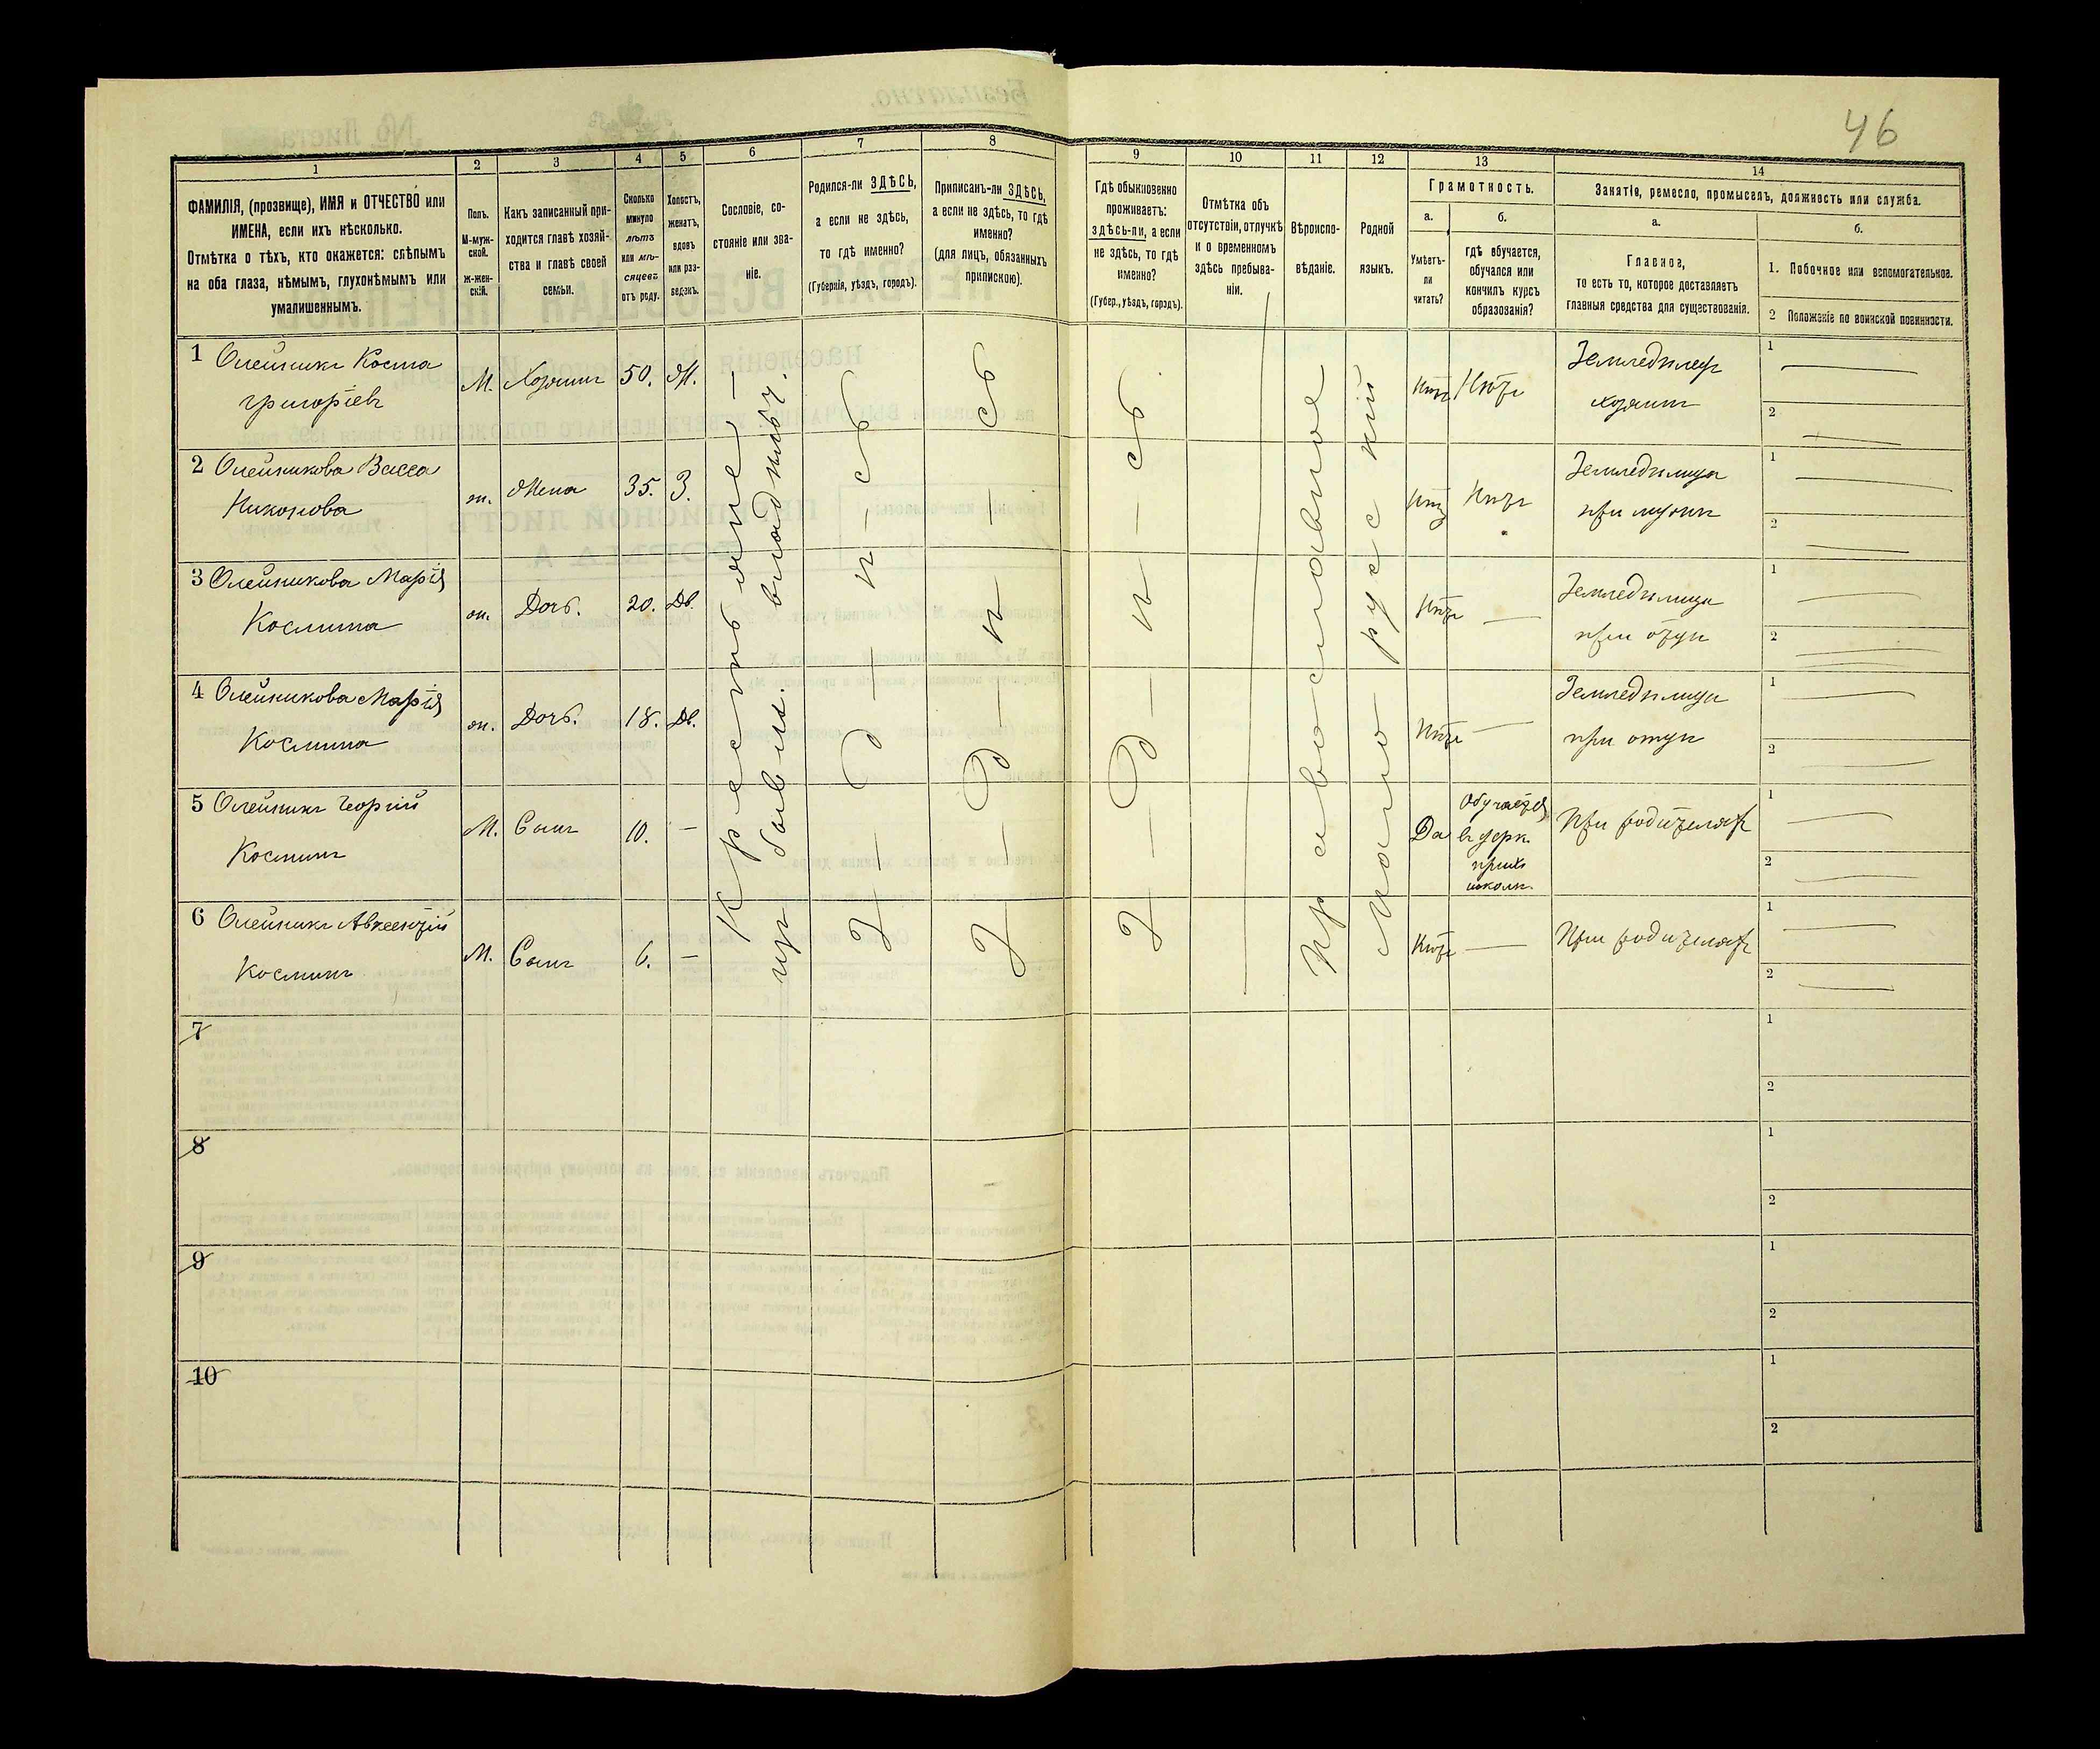 46
1
2
3
4
5
6
7
8
9
10
11
12
13
14
ФАМИЛІЯ, (прозвище), ИМЯ и ОТЧЕСТВО или
ИМЕНА, если ихъ нѣсколько.
Отмѣтка о тѣхъ, кто окажется: слѣпымъ
на оба глаза, нѣмымъ, глухонѣмымъ или
умалишеннымъ.
Полъ.
М-муж-
ской.
ж-жен-
скій.
Какъ записанный при-
ходится главѣ хозяй-
ства и главѣ своей
семьи.
Сколько
минуло
лѣтъ
или мѣ-
сяцевъ
отъ роду.
Холостъ,
женатъ,
вдовъ
или раз-
веденъ.
Сословіе, со-
стояніе или зва-
ніе.
Родился-ли ЗДѢСЬ,
а если не здѣсь,
то гдѣ именно?
(Губернія, уѣздъ, городъ).
Приписанъ-ли ЗДѢСЬ,
а если не здѣсь, то гдѣ
именно?
(для лицъ, обязанныхъ
припискою).
Гдѣ обыкновенно
проживаетъ:
здѣсь-ли, а если
не здѣсь, то гдѣ
именно?
(Губер., уѣздъ, городъ).
Отмѣтка объ
отсутствіи, отлучкѣ
и о временномъ
здѣсь пребыва-
ніи.
Вѣроиспо-
вѣданіе.
Родной
языкъ.
Грамотность.
а.
Умѣетъ-
ли
читать?
б.
гдѣ обучается,
обучался или
кончилъ курсъ
образованія?
Занятіе, ремесло, промыселъ, должность или служба.
а.
Главное,
то есть то, которое доставляетъ
главныя средства для существованія.
б.
1. Побочное или вспомогательное.
2 Положеніе по воинской повинности.
Крестьяне
изъ бывш. владѣльч.
Здѣсь
Здѣсь
Здѣсь
Православное
Малорусскій
1 Олейникъ Косма
Григоріевъ
М. Хозяинъ 50. Ж.
Нѣтъ Нѣтъ
Земледѣлецъ
хозяинъ
1
2
2 Олейникова Васса
Никонова
ж. Жена 35. З.
Нѣтъ Нѣтъ
Земледѣлица
при мужѣ
1
2
3 Олейникова Марія
Космина
ж. Дочь. 20. Дѣ.
Нѣтъ —
Земледѣлица
при отцѣ
1
2
4 Олейникова Марія
Космина
ж. Дочь. 18. Дѣ.
Нѣтъ —
Земледѣлица
при отцѣ
1
2
5 Олейникъ Георгій
Косминъ
М. Сынъ 10. —
Да
Обучается
въ церк.
прих.
школѣ.
При родителяхъ
1
2
6 Олейникъ Авксентій
Косминъ
М. Сынъ 6. —
Нѣтъ —
При родителяхъ
1
2
7
1
2
8
1
2
9
1
2
10
1
2